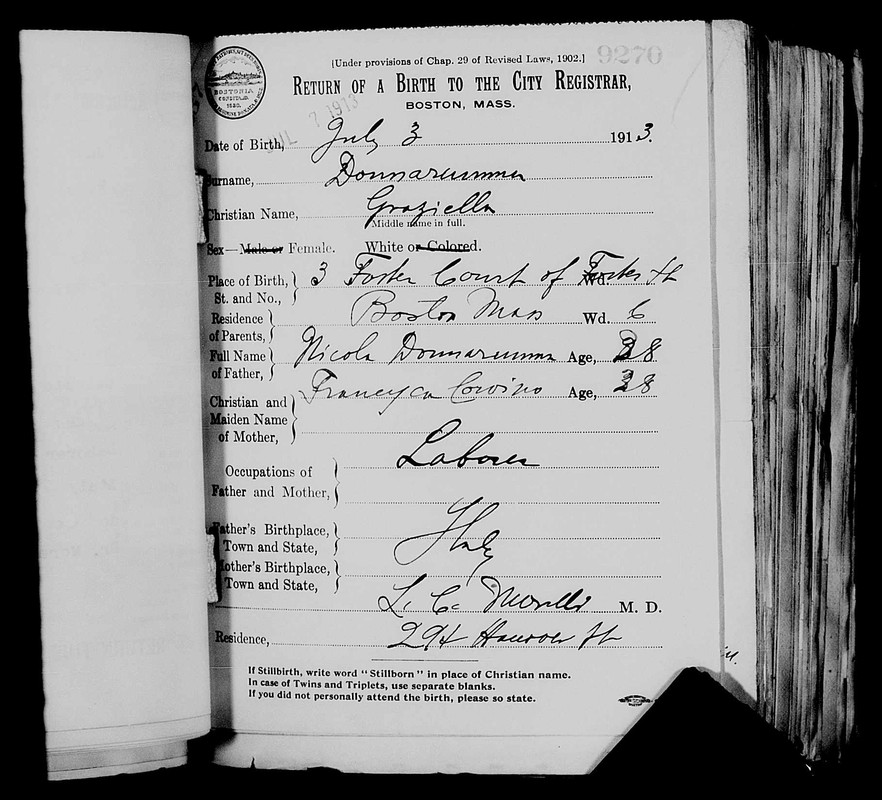 [Under provisions of Chap. 29 of Revised Laws, 1902.] 9270
RETURN OF A BIRTH TO THE CITY REGISTRAR,
BOSTON, MASS.
BOSTONIA
CONDITA A.D.
1630.
JUL 7 1913
Date of Birth, July 3 1913.
Surname, Donnarumma
Christian Name, Graziella
Middle name in full.
Sex—Male or Female. White or Colored.
Place of Birth, St. and No., 3 Foster Court of Foster St Wd.
Residence of Parents, Boston Mass Wd. 6
Full Name of Father, Nicola Donnarumma Age, 38
Christian and Maiden Name of Mother, Francesca Covino Age, 28
Occupations of Father and Mother, Laborer
Father's Birthplace, Town and State,
Italy
Mother's Birthplace, Town and State,
L. C. Morelli M. D.
Residence, 294 Hanover St
If Stillbirth, write word "Stillborn" in place of Christian name.
In case of Twins and Triplets, use separate blanks.
If you did not personally attend the birth, please so state.